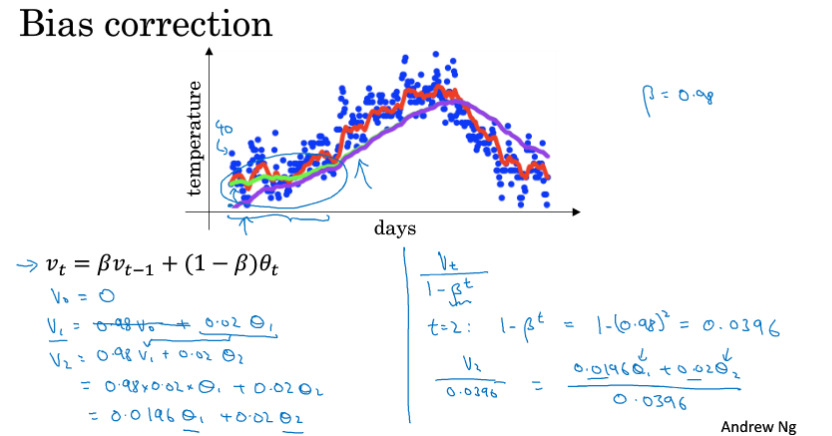 Bias correction
β = 0.98
40
temperature
days
→ vₜ = βvₜ₋₁ + (1 − β)θₜ
V₀ = 0
V₁ = 0.98 V₀ + 0.02 θ₁
V₂ = 0.98 V₁ + 0.02 θ₂
= 0.98 x 0.02 x θ₁ + 0.02 θ₂
= 0.0196 θ₁ + 0.02 θ₂
Vₜ / 1 - βᵗ
t=2: 1 - βᵗ = 1 - (0.98)² = 0.0396
V₂ / 0.0396 = 0.0196θ₁ + 0.02θ₂ / 0.0396
Andrew Ng